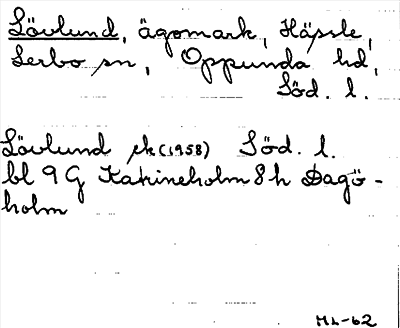 Lövlund, ägomark, Häpsle,
Lerbo sn, Oppunda hd,
Söd. l.
Lövlund ek (1958) Söd. l.
bl 9 G Katrineholm 8 h Dagö-
holm
ML-62